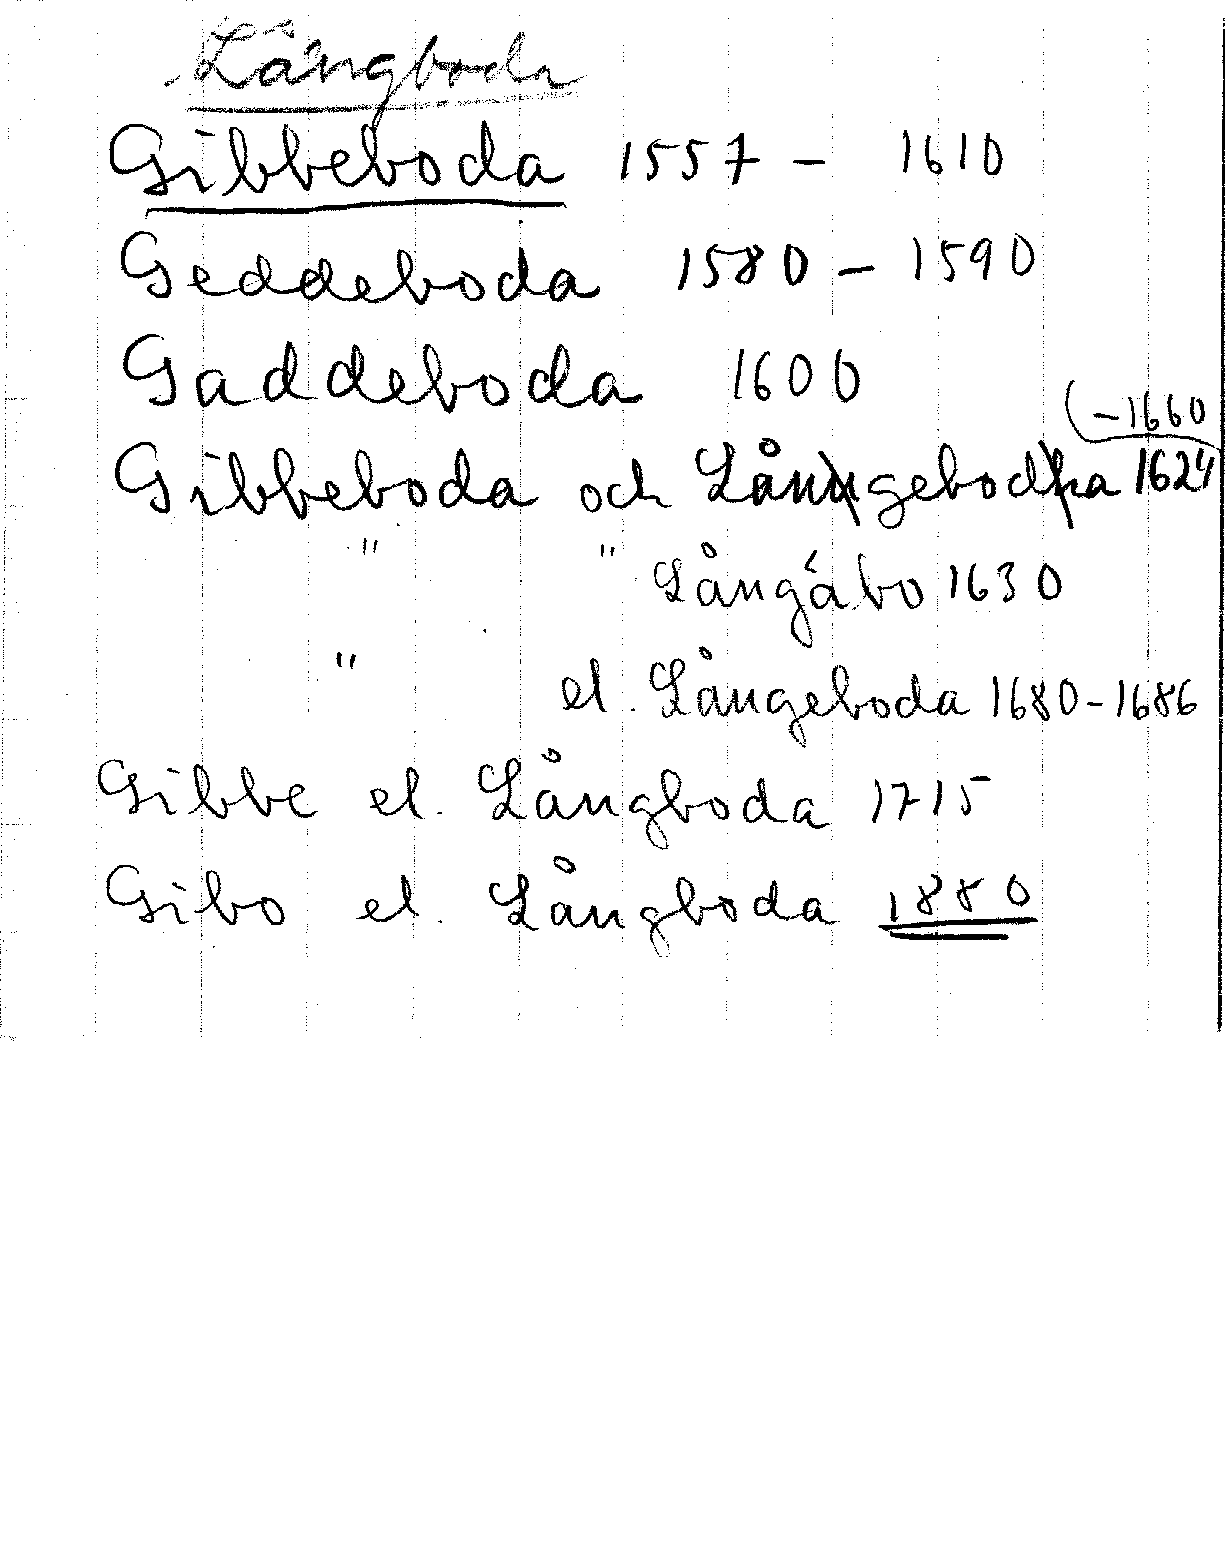 Långboda
Gibbeboda 1557 - 1610
Geddeboda 1580 - 1590
Gaddeboda 1600
(-1660
Gibbeboda och Långeboda 1624
" " Långábo 1630
" el. Långeboda 1680-1686
Gibbe el. Långboda 1715
Gibo el. Långboda 1880